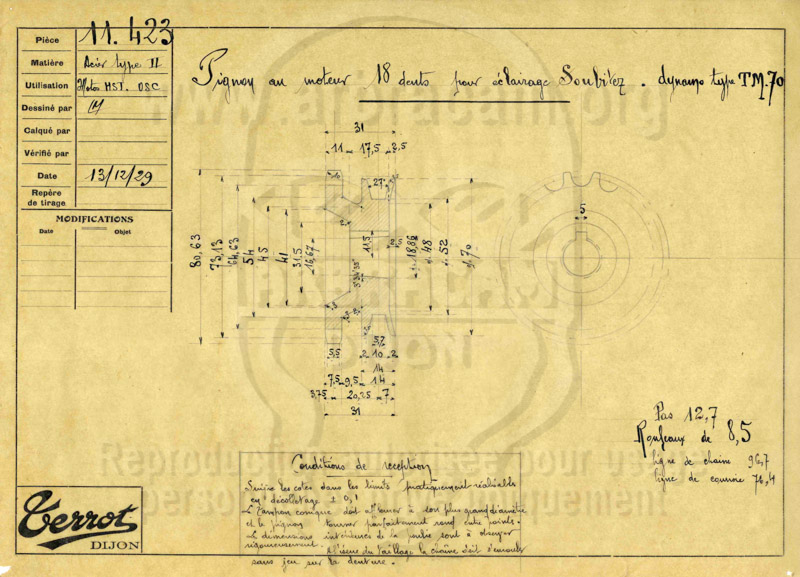 Pièce 11.423
Matière Acier type II
Utilisation Motos HST. OSC
Dessiné par
Calqué par
Vérifié par
Date 13/12/29
Repère
de tirage
MODIFICATIONS
Date Objet
Pignon au moteur 18 dents pour éclairage Soubitez . dynamo type TM.70
31
11 17,5 2,5
27°
80,63
73,13
64,63
54
45
41
31,5
16,67
11,5
5°34'35"
18,86
48
52
70
5
5,7
5,5 2 10 2
14
7,5 9,5 14
3,75 20,25 7
31
Pas 12,7
Rouleaux de 8,5
ligne de chaine 96,7
ligne de couronne 76,4
Conditions de réception
Suivre les cotes dans les limites pratiquement réalisables
en décolletage ± 0,1
Le tampon conique doit affleurer à son plus grand diamètre
et le pignon tourner parfaitement rond entre pointes.
Les dimensions intérieures de la poulie sont à observer
rigoureusement. A l'issue du taillage la chaîne doit s'enrouler
sans jeu sur la denture.
Terrot
DIJON